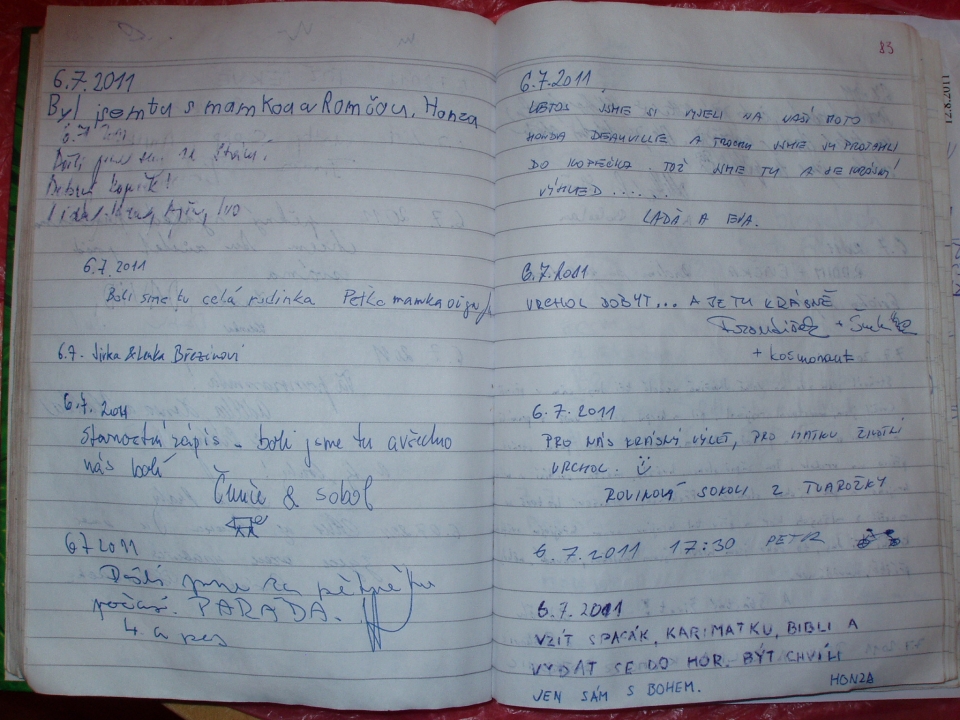 6.7.2011
Byl jsem tu s mamkou a Romčou, Honza
6.7.
Došli jsme
6.7.2011
Boli sme tu celá rodinka Peťko mamka
6.7. Jirka & Lenka Březinovi
6.7.2011
zápis - boli jsme tu a všechno
nás bolí
& sobol
6.7.2011
Došli jsme za pěkného
počasí. PARÁDA.
4. a pes
83
6.7.2011
LETOS JSME SI VYJELI NA NAŠÍ MOTO
HONDA DEAUVILLE A TROCHU JSME JI PROTÁHLI
DO KOPEČKA. TOŽ JSME TU A JE KRÁSNÝ
VÝHLED ......
LAĎA A EVA.
6.7.2011
VRCHOL DOBYT... A JE TU KRÁSNĚ
František +
+ kosmonaut
6.7.2011
PRO NÁS KRÁSNÝ VÝLET, PRO MATKU ŽIVOTNÍ
VRCHOL.
ROVINOVÁ SOKOLI Z TVAROŽKY
6.7.2011 17:30 PETR
6.7.2011
VZÍT SPACÁK, KARIMATKU, BIBLI A
VYDAT SE DO HOR. BÝT CHVÍLI
JEN SÁM S BOHEM. HONZA
12.8.2011